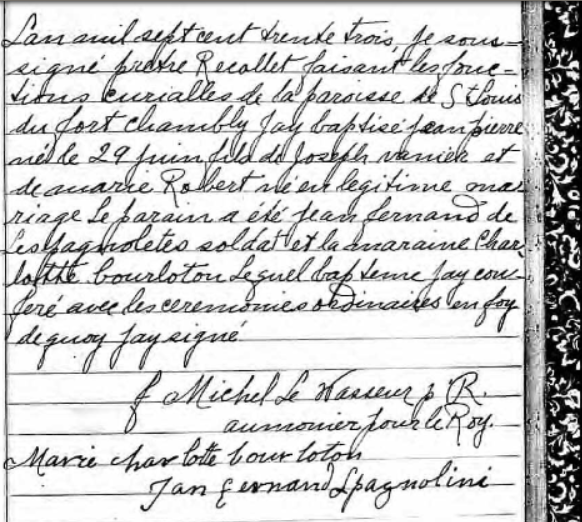 Lan mil sept cent trente trois, je sous=
signé pretre Recollet faisant les fonc=
tions curialles de la paroisse de St Louis
du fort Chambly Jay baptisé jean pierre
né le 29 juin fils de Joseph vanier et
de marie Robert né en legitime ma=
riage Le parain a été jean fernand de
Lespagnoletes soldat et la maraine Char=
lotthe bourloton Lequel bapteme jay con=
feré avec les ceremonies ordinaires en foy
de quoy Jay signé
f Michel Le Vasseur p R.
aumonier pour le Roy.
Marie charlotte bourloton
Jan fernand Lpagnolini